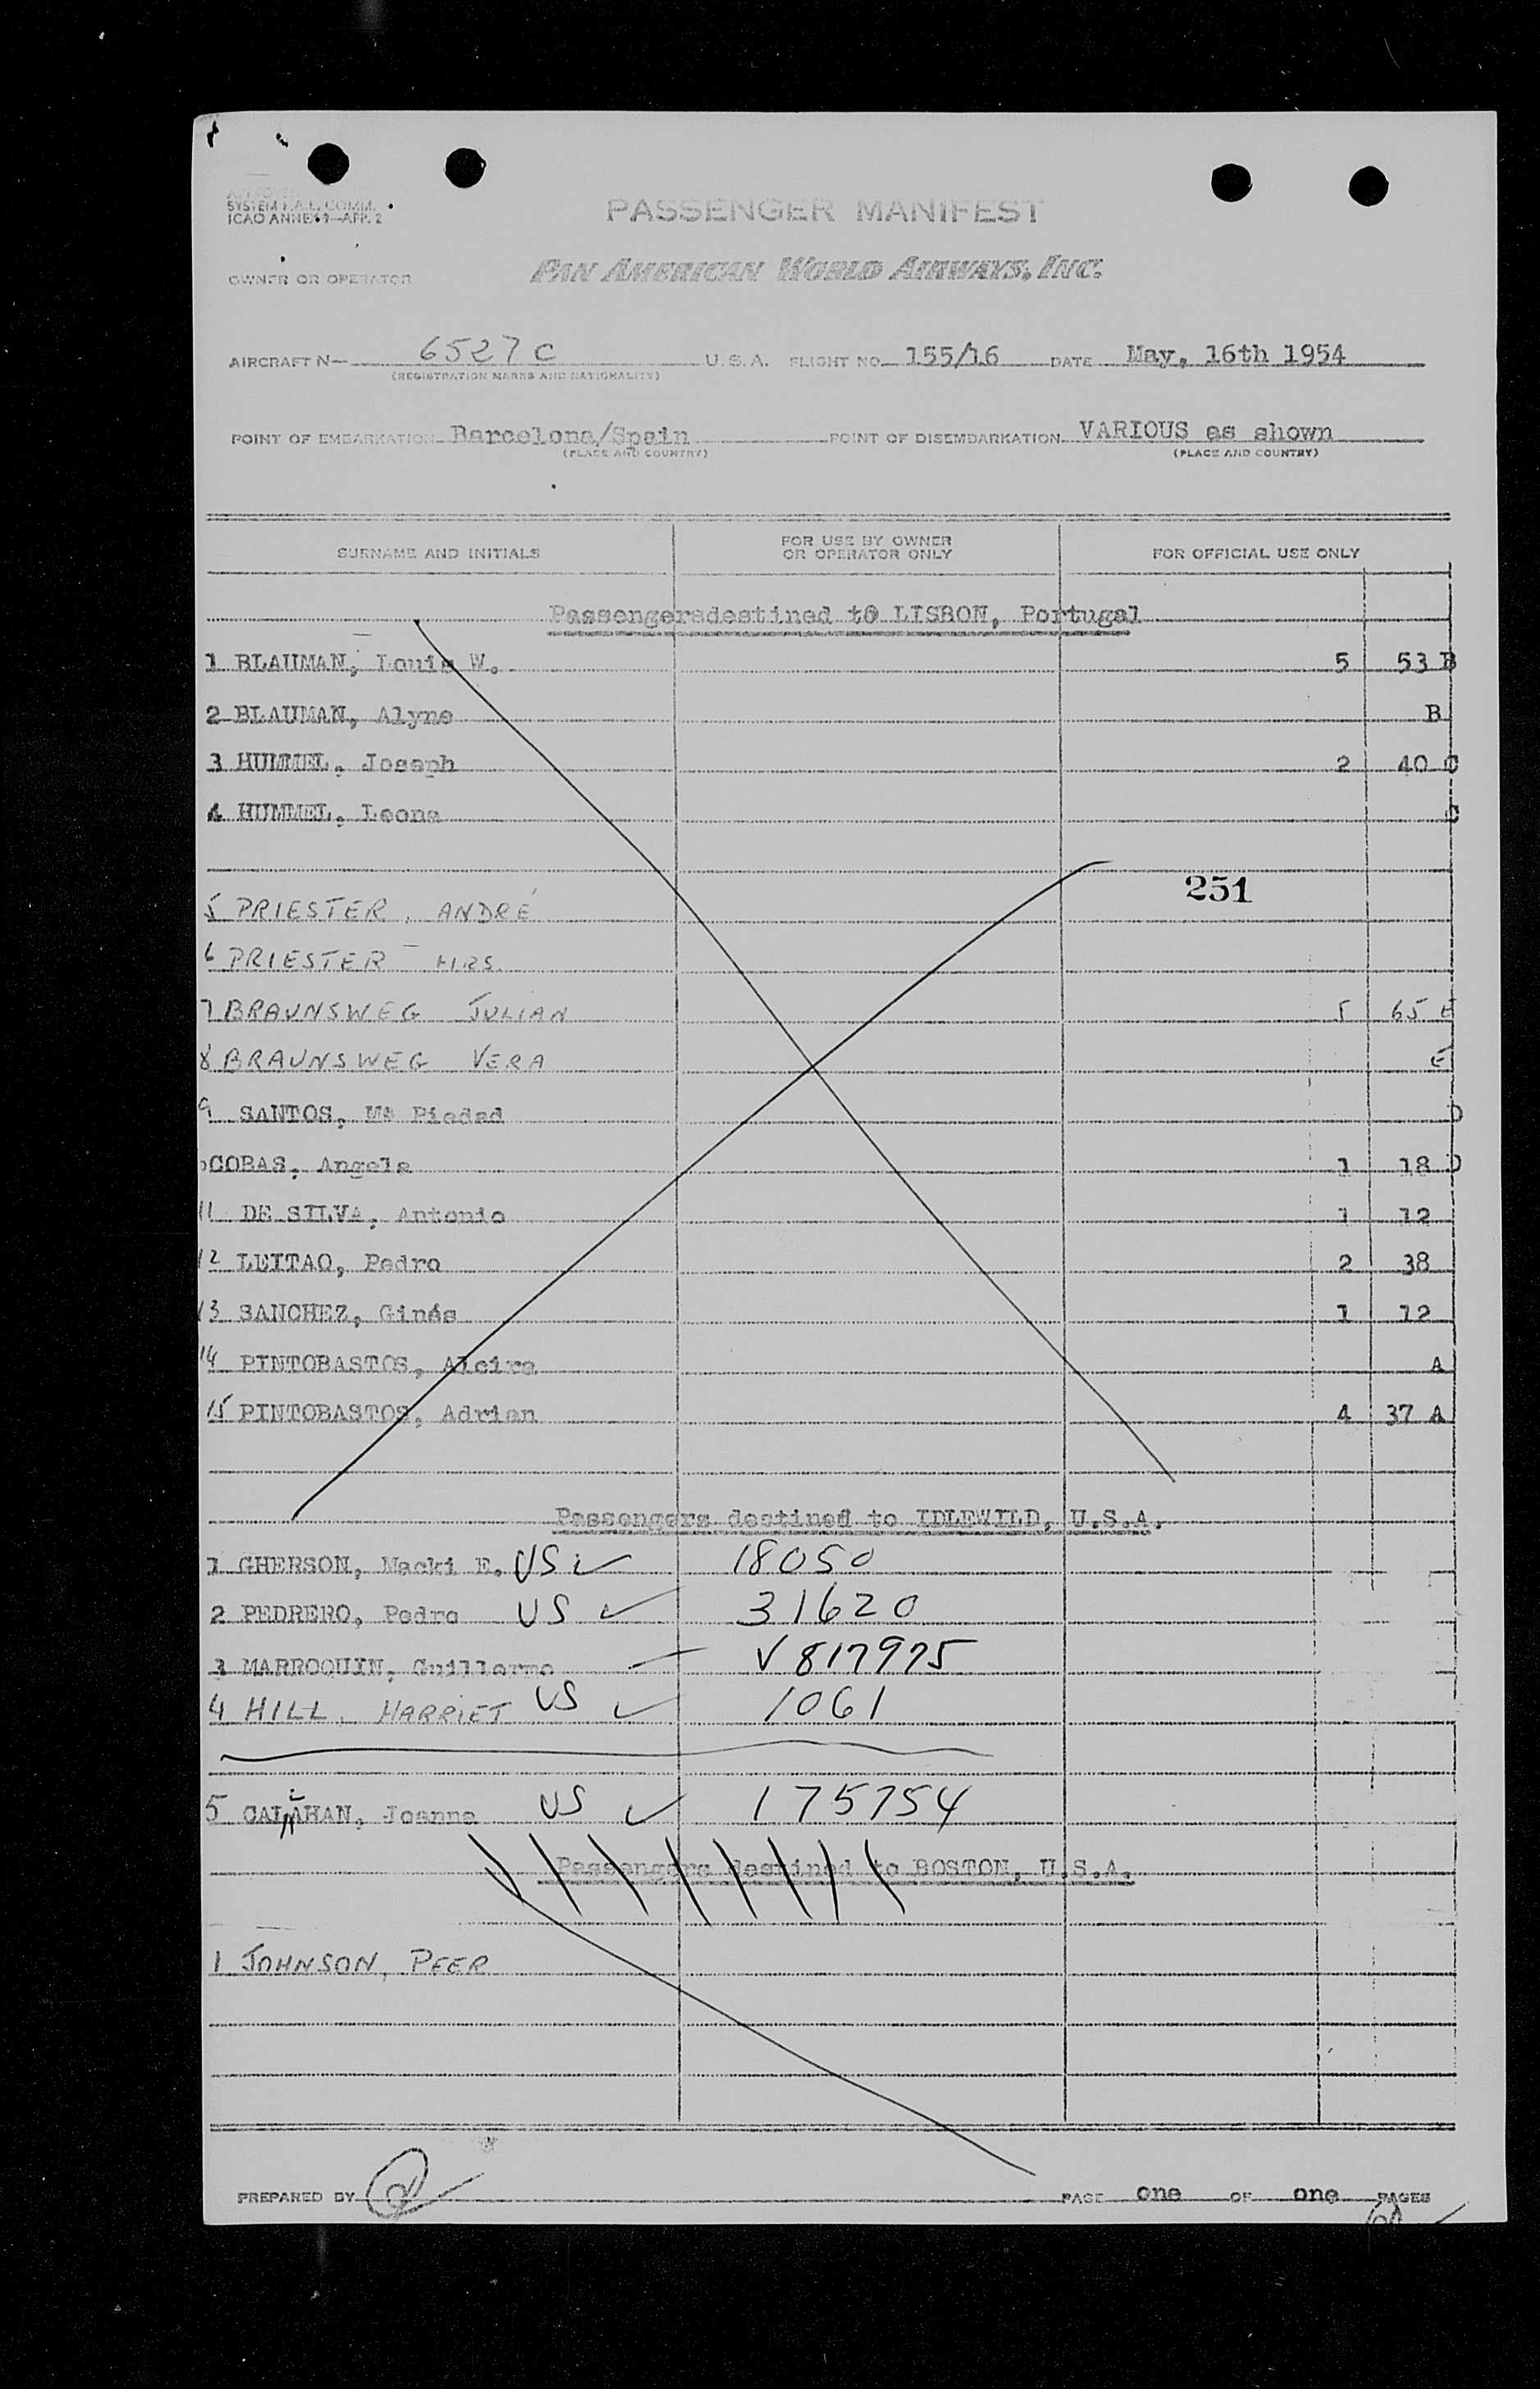 SYSTEM F.A.L. COMM.
ICAO ANNEX 9—APP. 2
PASSENGER MANIFEST
OWNER OR OPERATOR PAN AMERICAN WORLD AIRWAYS, INC.
AIRCRAFT N— 6527C U.S.A. FLIGHT NO. 155/16 DATE May, 16th 1954
(REGISTRATION MARKS AND NATIONALITY)
POINT OF EMBARKATION Barcelona/Spain POINT OF DISEMBARKATION VARIOUS as shown
(PLACE AND COUNTRY) (PLACE AND COUNTRY)
SURNAME AND INITIALS FOR USE BY OWNER OR OPERATOR ONLY FOR OFFICIAL USE ONLY
Passengersdestined to LISBON, Portugal
1 BLAUMAN, Louis W. 5 53 B
2 BLAUMAN, Alyne B
3 HUMMEL, Joseph 2 40 C
4 HUMMEL, Leona C
251
5 PRIESTER, ANDRÉ
6 PRIESTER MRS.
7 BRAUNSWEG JULIAN 5 65 E
8 BRAUNSWEG VERA E
9 SANTOS, Mª Piedad D
COBAS, Angela 1 18 D
11 DE SILVA, Antonio 1 12
12 LEITAO, Pedro 2 38
13 SANCHEZ, Ginés 1 12
14 PINTOBASTOS, Alcira A
15 PINTOBASTOS, Adrian 4 37 A
Passengers destined to IDLEWILD, U.S.A.
1 GHERSON, Macki E. US ✓ 18050
2 PEDRERO, Pedro US ✓ 31620
3 MARROQUIN, Guillermo — V817975
4 HILL, HARRIET US ✓ 1061
5 CALAHAN, Joanna US ✓ 175754
Passengers destined to BOSTON, U.S.A.
1 JOHNSON, PEER
PREPARED BY PAGE one OF one PAGES